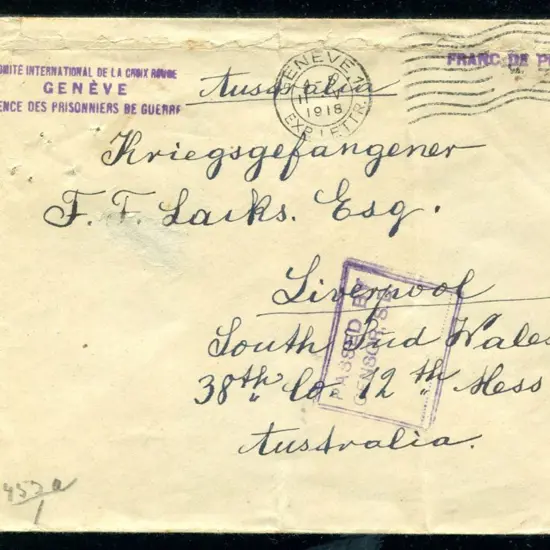 OMITÉ INTERNATIONAL DE LA CROIX ROUGE
GENÈVE
ENCE DES PRISONNIERS DE GUERRE
GENÈVE 1
1918
EXP. LETTR.
FRANC DE P
Australia
Kriegsgefangener
F. F. Laiks. Esq.
Liverpool
South Sud Wales
38th Co. 12th Mess
Australia.
PASSED BY
CENSOR, S.